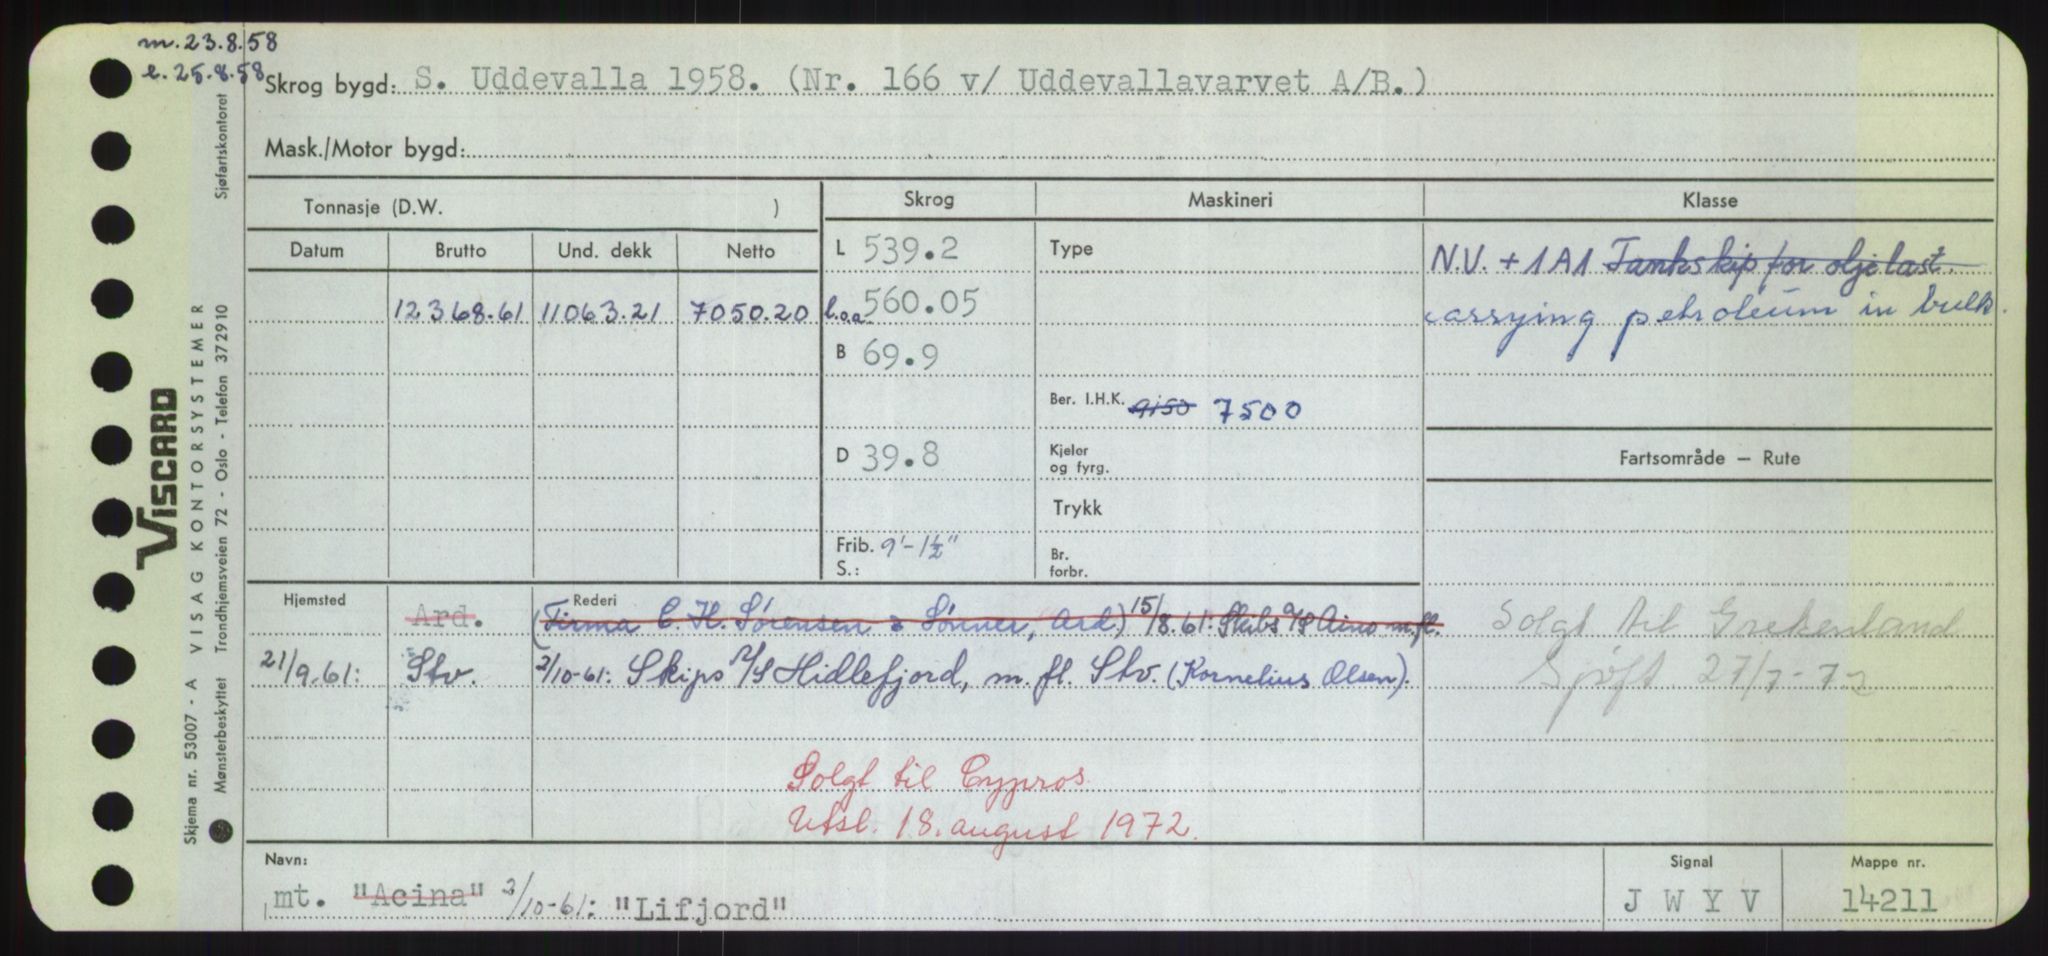 m. 23.8.58
e. 25.8.58
Skrog bygd: S. Uddevalla 1958. (Nr. 166 v/ Uddevallavarvet A/B.)
Mask./Motor bygd:
Tonnasje (D.W. )
Skrog
Maskineri
Klasse
Datum Brutto Und. dekk Netto
12.368.61 11063.21 7050.20
L 539.2
l.o.a. 560.05
B 69.9
D 39.8
Frib. 9'-1½"
S.:
Type
Ber. I.H.K. 9150 7500
Kjeler
og fyrg.
Trykk
Br.
forbr.
N.V. + 1A1 Tankskip for oljelast.
carrying petroleum in bulk.
Fartsområde — Rute
Solgt til Grekenland
Sjøft. 27/7-72
Hjemsted
Rederi
Ard. (Firma C. H. Sørensen & Sønner, Ard.) 15/8.61: Skibs A/S Aino m.fl.
21/9.61: Stv. 2/10-61: Skips A/S Hidlefjord, m. fl. Stv. (Kornelius Olsen).
Solgt til Cypros
Utsl. 18. august 1972.
Navn:
mt. "Acina" 2/10-61: "Lifjord"
Signal
J W Y V
Mappe nr.
14211
VISCARD
Skjema nr. 53007 - A VISAG KONTORSYSTEMER
Mønsterbeskyttet Trondhjemsveien 72 - Oslo - Telefon 372910 Sjøfartskontoret